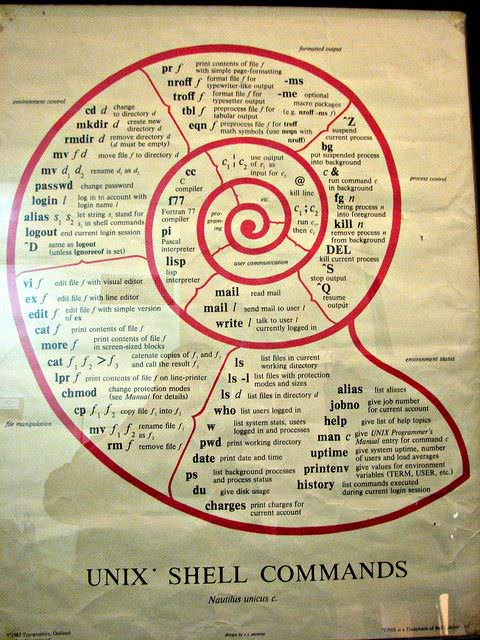 formatted output
pr f print contents of file f
with simple page-formatting
nroff f format file f for
typewriter-like output
troff f format file f for
typesetter output
tbl f preprocess file f for
tabular output
eqn f preprocess file f for troff
math symbols (use neqn with
nroff)
-ms
-me optional
macro packages
(e.g. nroff -ms f)
environment control
cd d change
to directory d
mkdir d create new
directory d
rmdir d remove directory d
(d must be empty)
mv f d move file f to directory d
mv d₁ d₂ rename d₁ as d₂
passwd change password
login l log in to account with
login name l
alias s₁ s₂ let string s₁ stand for
s₂ in shell commands
logout end current login session
^D same as logout
(unless ignoreeof is set)
process control
^Z
suspend
current process
bg
put suspended process
into background
c &
run command c
in background
fg n
bring process n
into foreground
kill n
remove process n
from background
DEL
kill current process
^S
stop output
^Q
resume
output
etc.
c₁ ¦ c₂ use output
of c₁ as
input for c₂
@
kill line
c₁ ; c₂
run c₁,
then c₂
programing
cc
C
compiler
f77
Fortran 77
compiler
pi
Pascal
interpreter
lisp
lisp
interpreter
user communication
mail read mail
mail l send mail to user l
write l talk to user l
currently logged in
file manipulation
vi f edit file f with visual editor
ex f edit file f with line editor
edit f edit file f with simple version
of ex
cat f print contents of file f
more f print contents of file f
in screen-sized blocks
cat f₁ f₂ >f₃ catenate copies of f₁ and f₂
and call the result f₃
lpr f print contents of file f on line-printer
chmod change protection modes
(see Manual for details)
cp f₁ f₂ copy file f₁ into f₂
mv f₁ f₂ rename file f₁
as f₂
rm f remove file f
environment status
ls list files in current
working directory
ls -l list files with protection
modes and sizes
ls d list files in directory d
who list users logged in
w list system stats, users
logged in and processes
pwd print working directory
date print date and time
ps list background processes
and process status
du give disk usage
charges print charges for
current account
alias list aliases
jobno give job number
for current account
help give list of help topics
man c give UNIX Programmer's
Manual entry for command c
uptime give system uptime, number
of users and load averages
printenv give values for environment
variables (TERM, USER, etc.)
history list commands executed
during current login session
UNIX* SHELL COMMANDS
Nautilus unicus c.
design by
*UNIX is a Trademark of Bell